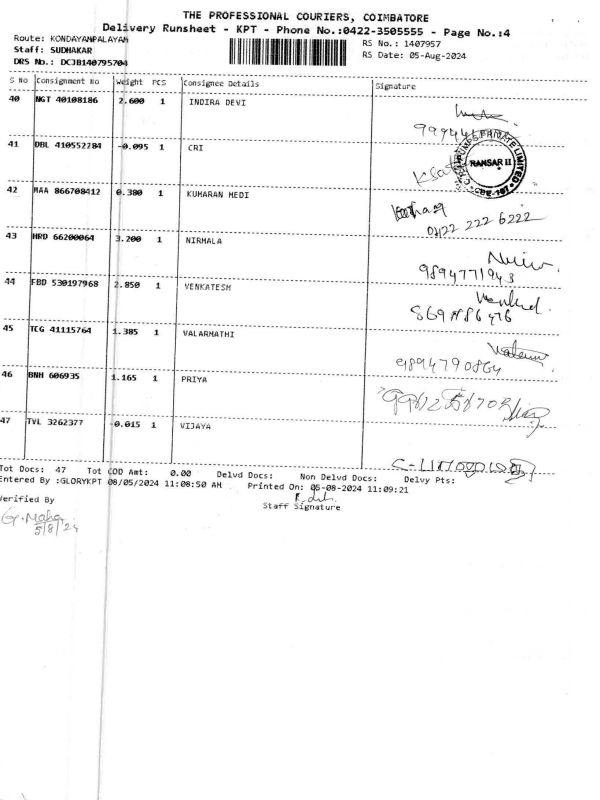 THE PROFESSIONAL COURIERS, COIMBATORE
Delivery Runsheet - KPT - Phone No.:0422-3505555 - Page No.:4
Route: KONDAYAMPALAYAM
RS No.: 1407957
Staff: SUDHAKAR
RS Date: 05-Aug-2024
DRS No.: DCJB140795704
S No Consignment No Weight PCS Consignee Details Signature
40 NGT 40108186 2.600 1 INDIRA DEVI
41 DBL 410552284 -0.095 1 CRI
PUMPS PRIVATE LIMITED
RANSAR II
42 MAA 866708412 0.380 1 KUMARAN MEDI
0422 222 6222
43 HRD 66200064 3.200 1 NIRMALA
9894771943
44 FBD 530197968 2.850 1 VENKATESH
45 TCG 41115764 1.385 1 VALARMATHI
9894790864
46 BNH 606935 1.165 1 PRIYA
47 TVL 3262377 -0.015 1 VIJAYA
Tot Docs: 47 Tot COD Amt: 0.00 Delvd Docs: Non Delvd Docs: Delvy Pts:
Entered By :GLORYKPT 08/05/2024 11:08:50 AM Printed On: 05-08-2024 11:09:21
Staff Signature
Verified By
G. Maha
5/8/24